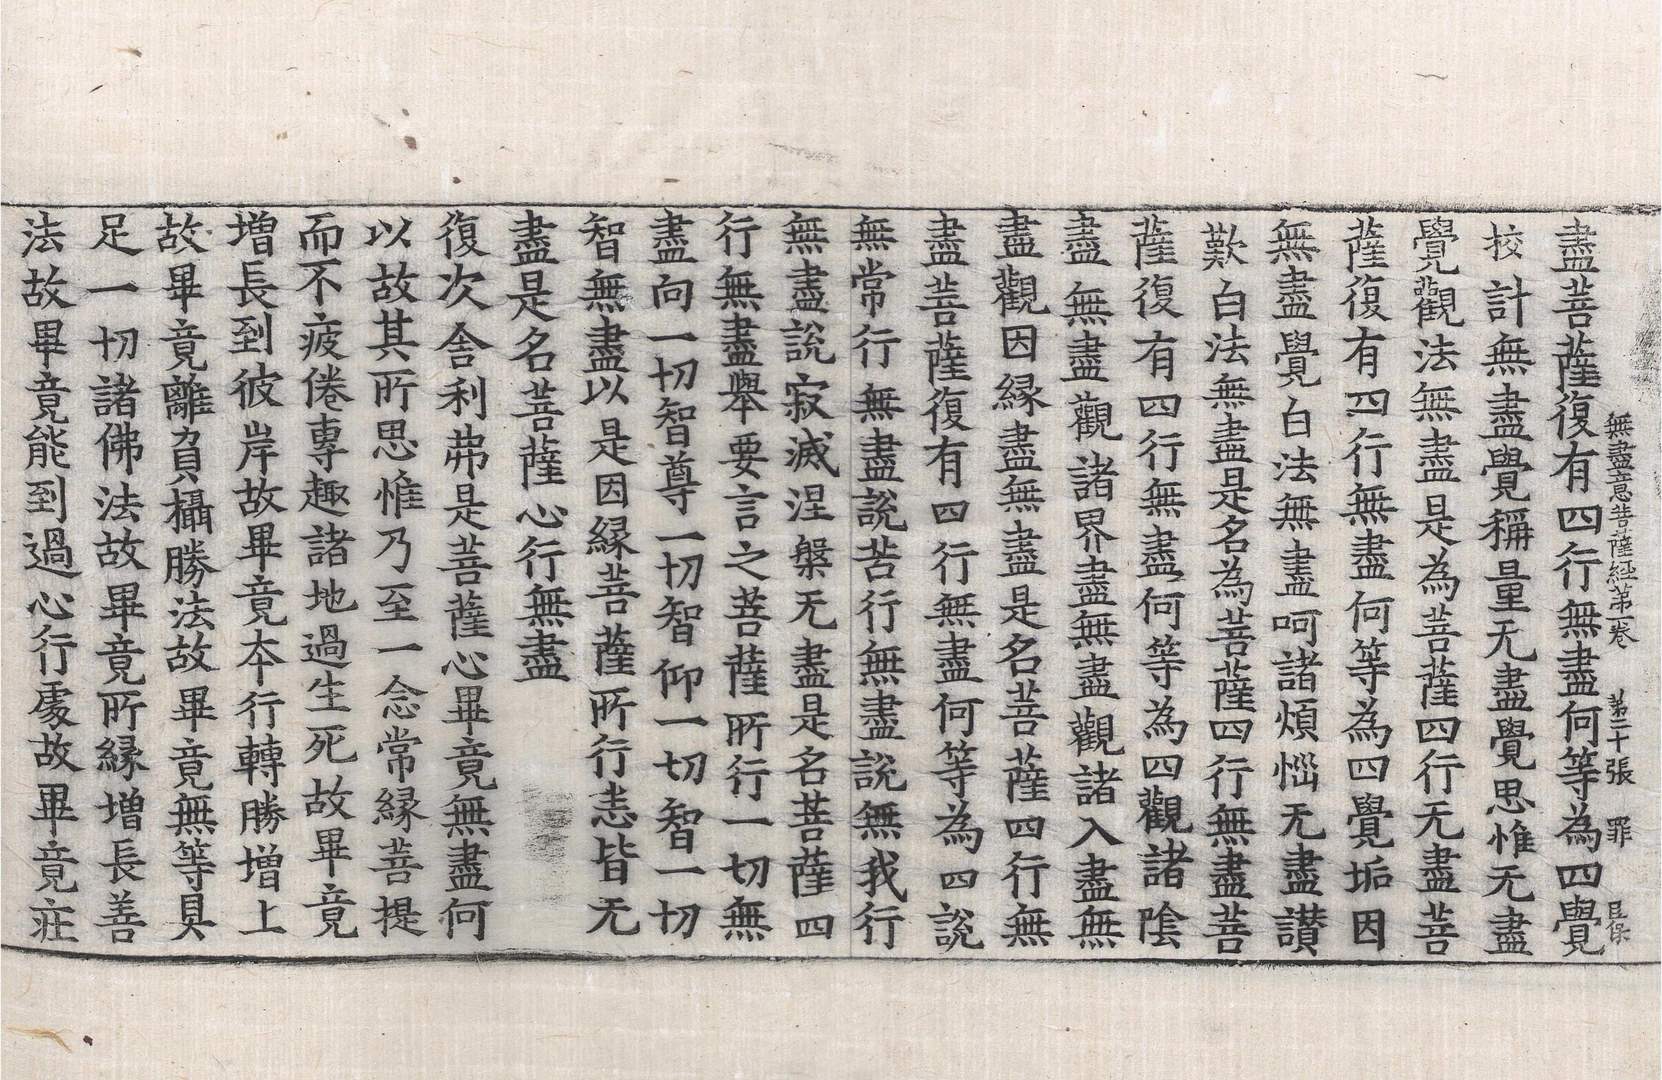 無盡意菩薩經第一卷 第二十張 罪
盡菩薩復有四行無盡何等為四覺
挍計無盡覺稱量无盡覺思惟无盡
覺觀法無盡是為菩薩四行无盡菩
薩復有四行無盡何等為四覺垢因
無盡覺白法無盡呵諸煩惱无盡讃
歎白法無盡是名為菩薩四行無盡菩
薩復有四行無盡何等為四觀諸陰
盡無盡觀諸界盡無盡觀諸入盡無
盡觀因縁盡無盡是名菩薩四行無
盡菩薩復有四行無盡何等為四說
無常行無盡說苦行無盡說無我行
無盡說寂滅涅槃无盡是名菩薩四
行無盡舉要言之菩薩所行一切無
盡向一切智尊一切智仰一切智一切
智無盡以是因縁菩薩所行恚皆无
盡是名菩薩心行無盡
復次舎利弗是菩薩心畢竟無盡何
以故其所思惟乃至一念常縁菩提
而不疲倦專趣諸地過生死故畢竟
增長到彼岸故畢竟本行轉勝增上
故畢竟離負攝勝法故畢竟無等具
足一切諸佛法故畢竟所縁增長善
法故畢竟能到過心行處故畢竟㽵